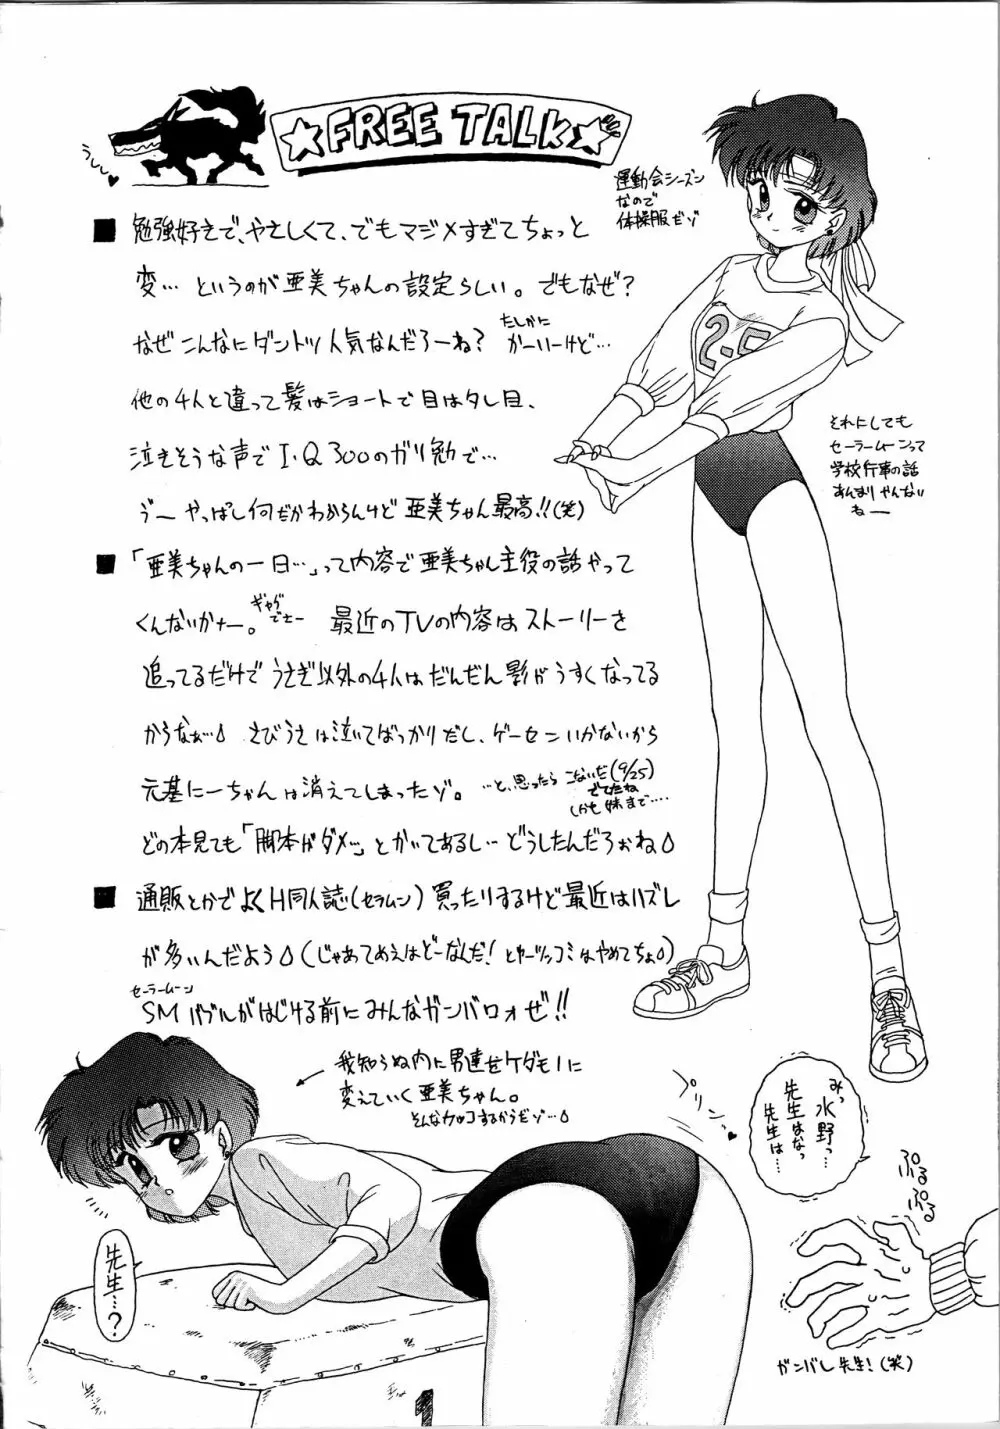 FREE TALK
うぅ…
運動会シーズン
なので
体操服だゾ
■ 勉強好きで、やさしくて、でもマジメすぎてちょっと
変… というのが亜美ちゃんの設定らしい。でもなぜ?
なぜこんなにダントツ人気なんだろーね? たしかに かーいーけど…
他の4人と違って髪はショートで目はタレ目、
泣きそうな声でI・Q300のガリ勉で…
う゛ー やっぱし何だかわからんけど 亜美ちゃん最高!!(笑)
それにしても
セーラームーンって
学校行事の話
あんまりやんない
ねー
■ 「亜美ちゃんの一日…」って内容で亜美ちゃん主役の話やって
くんないかナー。 ギャグでさー 最近のTVの内容はストーリーを
追ってるだけで うさぎ以外の4人はだんだん影がうすくなってる
からなぁ… ちびうさは泣いてばっかりだし、ゲーセンいかないから
元基にーちゃんは消えてしまったゾ。 …と、思ったら こないだ(9/25)
でてたね
しかも妹まで…
どの本見ても「脚本がダメ…」とかいてあるし… どうしたんだろぉね
■ 通販とかでよくH同人誌(セラムン)買ったりするけど最近はハズレ
が多いんだよう(じゃあてめえはどーなんだ!とゆーツッコミはやめてちょ)
セーラームーン
SMバブルがはじける前にみんなガンバロォぜ!!
我知らぬ内に男達をケダモノに
変えていく亜美ちゃん。
そんなカッコするからだゾ…
プリン
みっ
水野…
先生はなっ
先生は…
ぷるぷる
先生…?
1
ガンバレ先生!(笑)